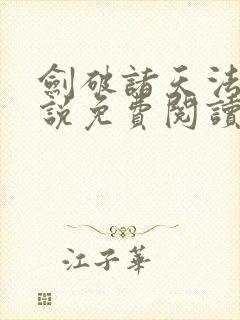 劍破諸天法
說免費閱讀
江子華